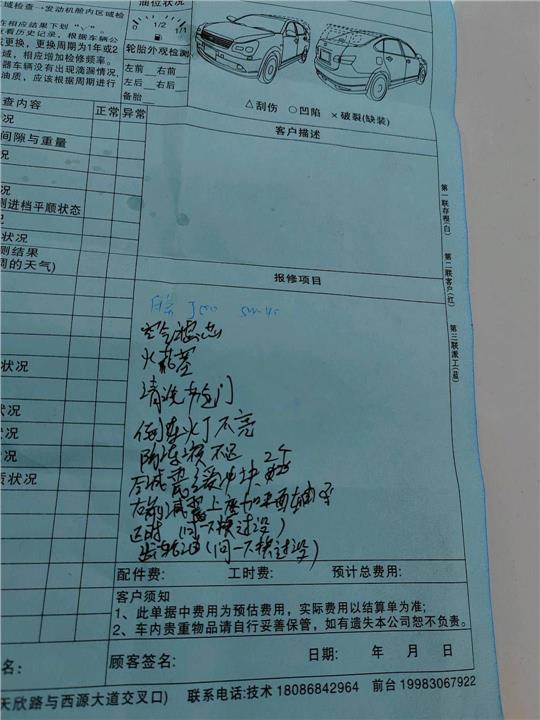 油位状况
域检查→发动机舱内区域检
在相应结果下划
1/2
1/1
查看历史记录，根据车辆公
或更换，更换周期为1年或2
域，相应增加检修频率。
器车辆没有出现滴漏情况，
油质，应该根据周期进行
轮胎外观检测
左前 右前
左后 右后
备胎
△刮伤 ○凹陷 ×破裂(缺装)
查内容 正常 异常
客户描述
况
间隙与重量
况
测进档平顺状态
况
状况
测结果
周的天气)
第一联存根(白)
第二联客户(红)
第三联派工(蓝)
报修项目
空气滤芯
火花塞
清洗节气门
倒车灯不亮
缓冲块 2个
(问一下换过没)
状况
状况
况
状况
况
质状况
配件费: 工时费: 预计总费用:
客户须知
1、此单据中费用为预估费用，实际费用以结算单为准;
2、车内贵重物品请自行妥善保管，如有遗失本公司恕不负责。
名: 顾客签名: 日期: 年 月 日
天欣路与西源大道交叉口) 联系电话:技术 18086842964 前台 19983067922